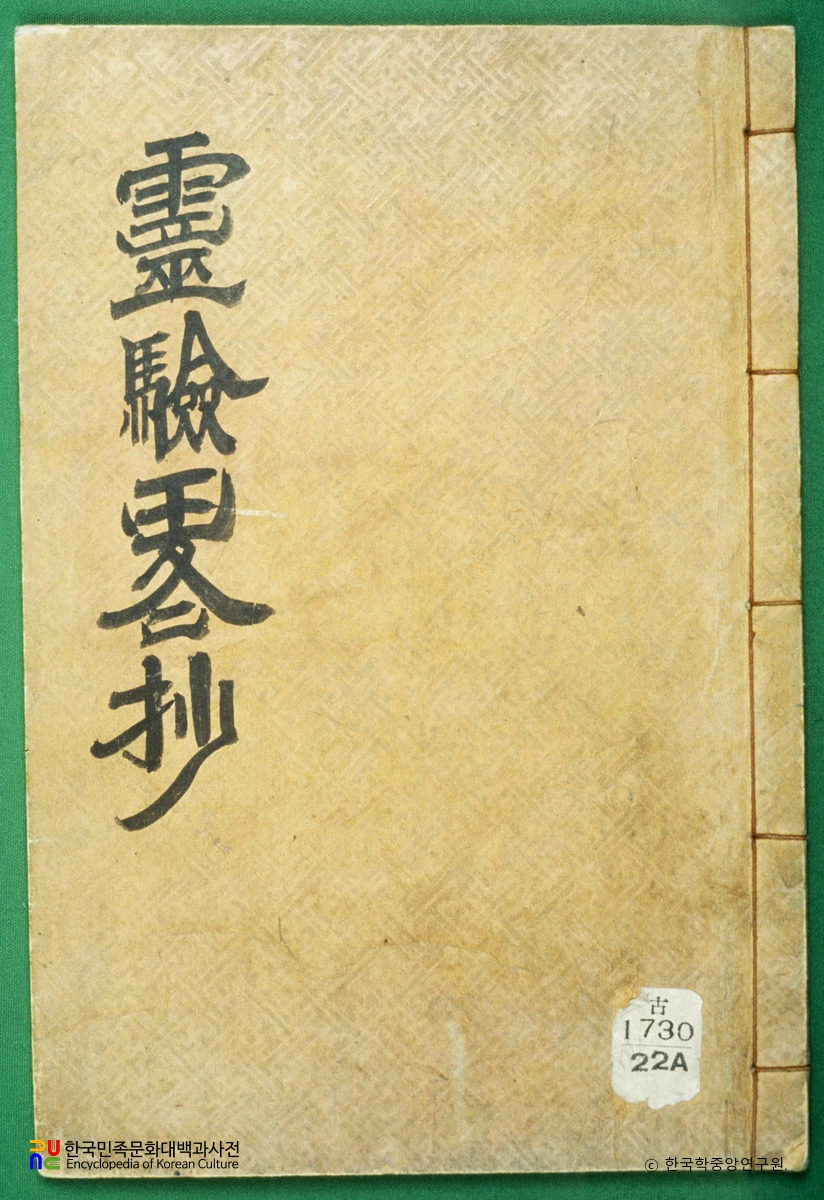 靈驗畧抄
古
1730
22A
한국민족문화대백과사전
Encyclopedia of Korean Culture
© 한국학중앙연구원.